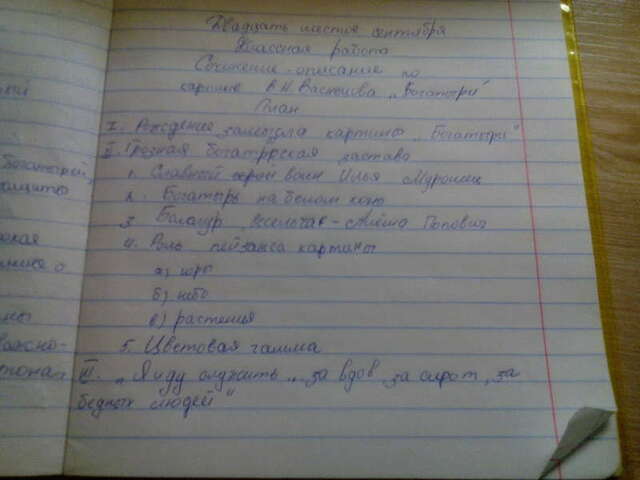 Двадцать шестое сентября
Классная работа
Сочинение-описание по
картине В.М. Васнецова „Богатыри"
План
I. Рождение замысла картины „Богатыри"
II. Грозная богатырская застава
1. Славный герой воин Илья Муромец
2. Богатырь на белом коне
3. Балагур, весельчак - Алёша Попович
4. Роль пейзажа картины
а) горы
б) небо
в) растения
5. Цветовая гамма
III. „Я иду служить „ за вдов, за сирот, за
бедных людей"
богатырей,